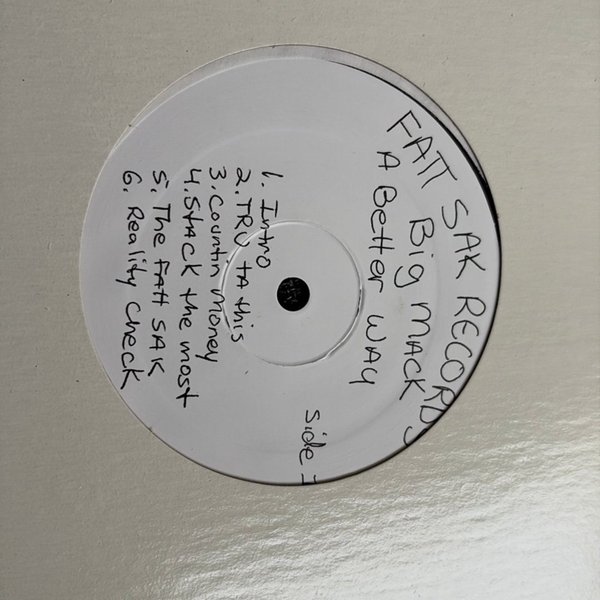 FATT SAK RECORDS
Big MACK
A Better WAy
Side 1
1. Intro
2. TRU tA this
3. Countin Money
4. StACK the most
5. The FAtt SAK
6. Reality Check